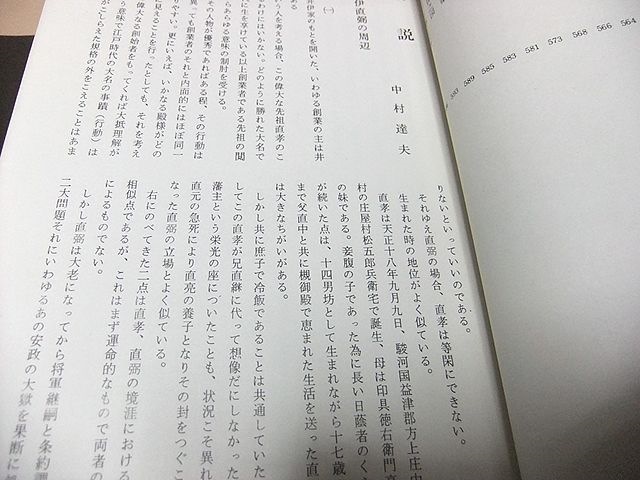 564
566
568
573
581
583
585
589
593
説
中村達夫
伊直弼の周辺
(一)
井伊家のもとを開いた、いわゆる創業の主は井
いう人を考える場合、この偉大な先祖直孝のこ
わけにはいかない。どのように勝れた大名で
に生を享けている以上創業者である先祖の関
らあらゆる意味の制肘を受ける。
その人が優秀であればある程、その行動は
異っても創業者のそれと内面的にはほぼ同一
りやすい。更にいえば、いかなる殿様がどの
に見えることを行ったとしても、それを考え
偉大なる創始者をもってくれば大抵理解が
う意味で江戸時代の大名の事蹟(行動)は
がこしらえた規格の外をこえることはあま
りないといっていいのである。
それゆえ直弼の場合、直孝は等閑にできない。
生まれた時の地位がよく似ている。
直孝は天正十八年九月九日、駿河国益津郡方上庄中
村の庄屋村松五郎兵衛宅で誕生、母は印具徳右衛門
の妹である。妾腹の子であった為に長い日蔭者のく
が続いた点は、十四男坊として生まれながら十七歳
まで父直中と共に槻御殿で恵まれた生活を送った直
は大きなちがいがある。
しかし共に庶子で冷飯であることは共通していた
してこの直孝が兄直継に代って想像だにしなかった
藩主という栄光の座についたことも、状況こそ異れ
直元の急死により直亮の養子となりその封をつぐこ
なった直弼の立場とよく似ている。
右にのべてきた二点は直孝、直弼の境涯における
相似点であるが、これはまず運命的なもので両者の
によるものでない。
しかし直弼は大老になってから将軍継嗣と条約調
二大問題それにいわゆるあの安政の大獄を果断に